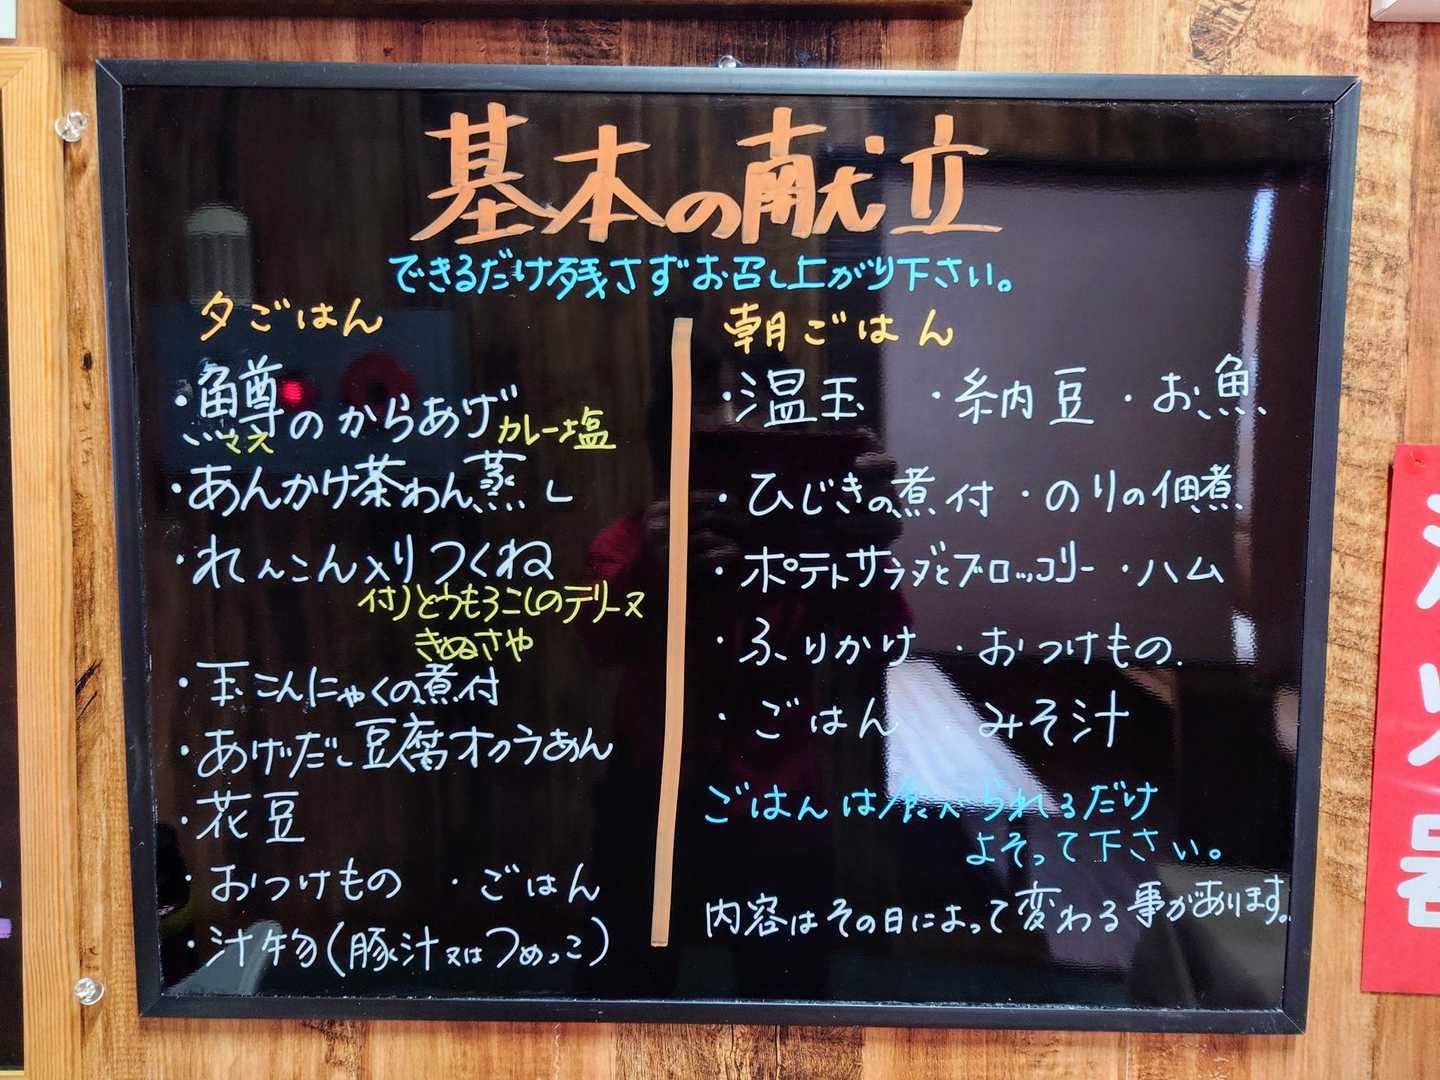 基本の献立
できるだけ残さずお召し上がり下さい。
夕ごはん
・鱒のからあげ カレー塩
マス
・あんかけ茶わん蒸し
・れんこん入りつくね
付)とうもろこしのテリーヌ
きぬさや
・玉こんにゃくの煮付
・あげだし豆腐オクラあん
・花豆
・おつけもの ・ごはん
・汁物(豚汁又はつめっこ)
朝ごはん
・温玉 ・納豆 ・お魚
・ひじきの煮付 ・のりの佃煮
・ポテトサラダとブロッコリー ・ハム
・ふりかけ ・おつけもの
・ごはん ・みそ汁
ごはんは食べられるだけ
よそって下さい。
内容はその日によって変わる事があります。